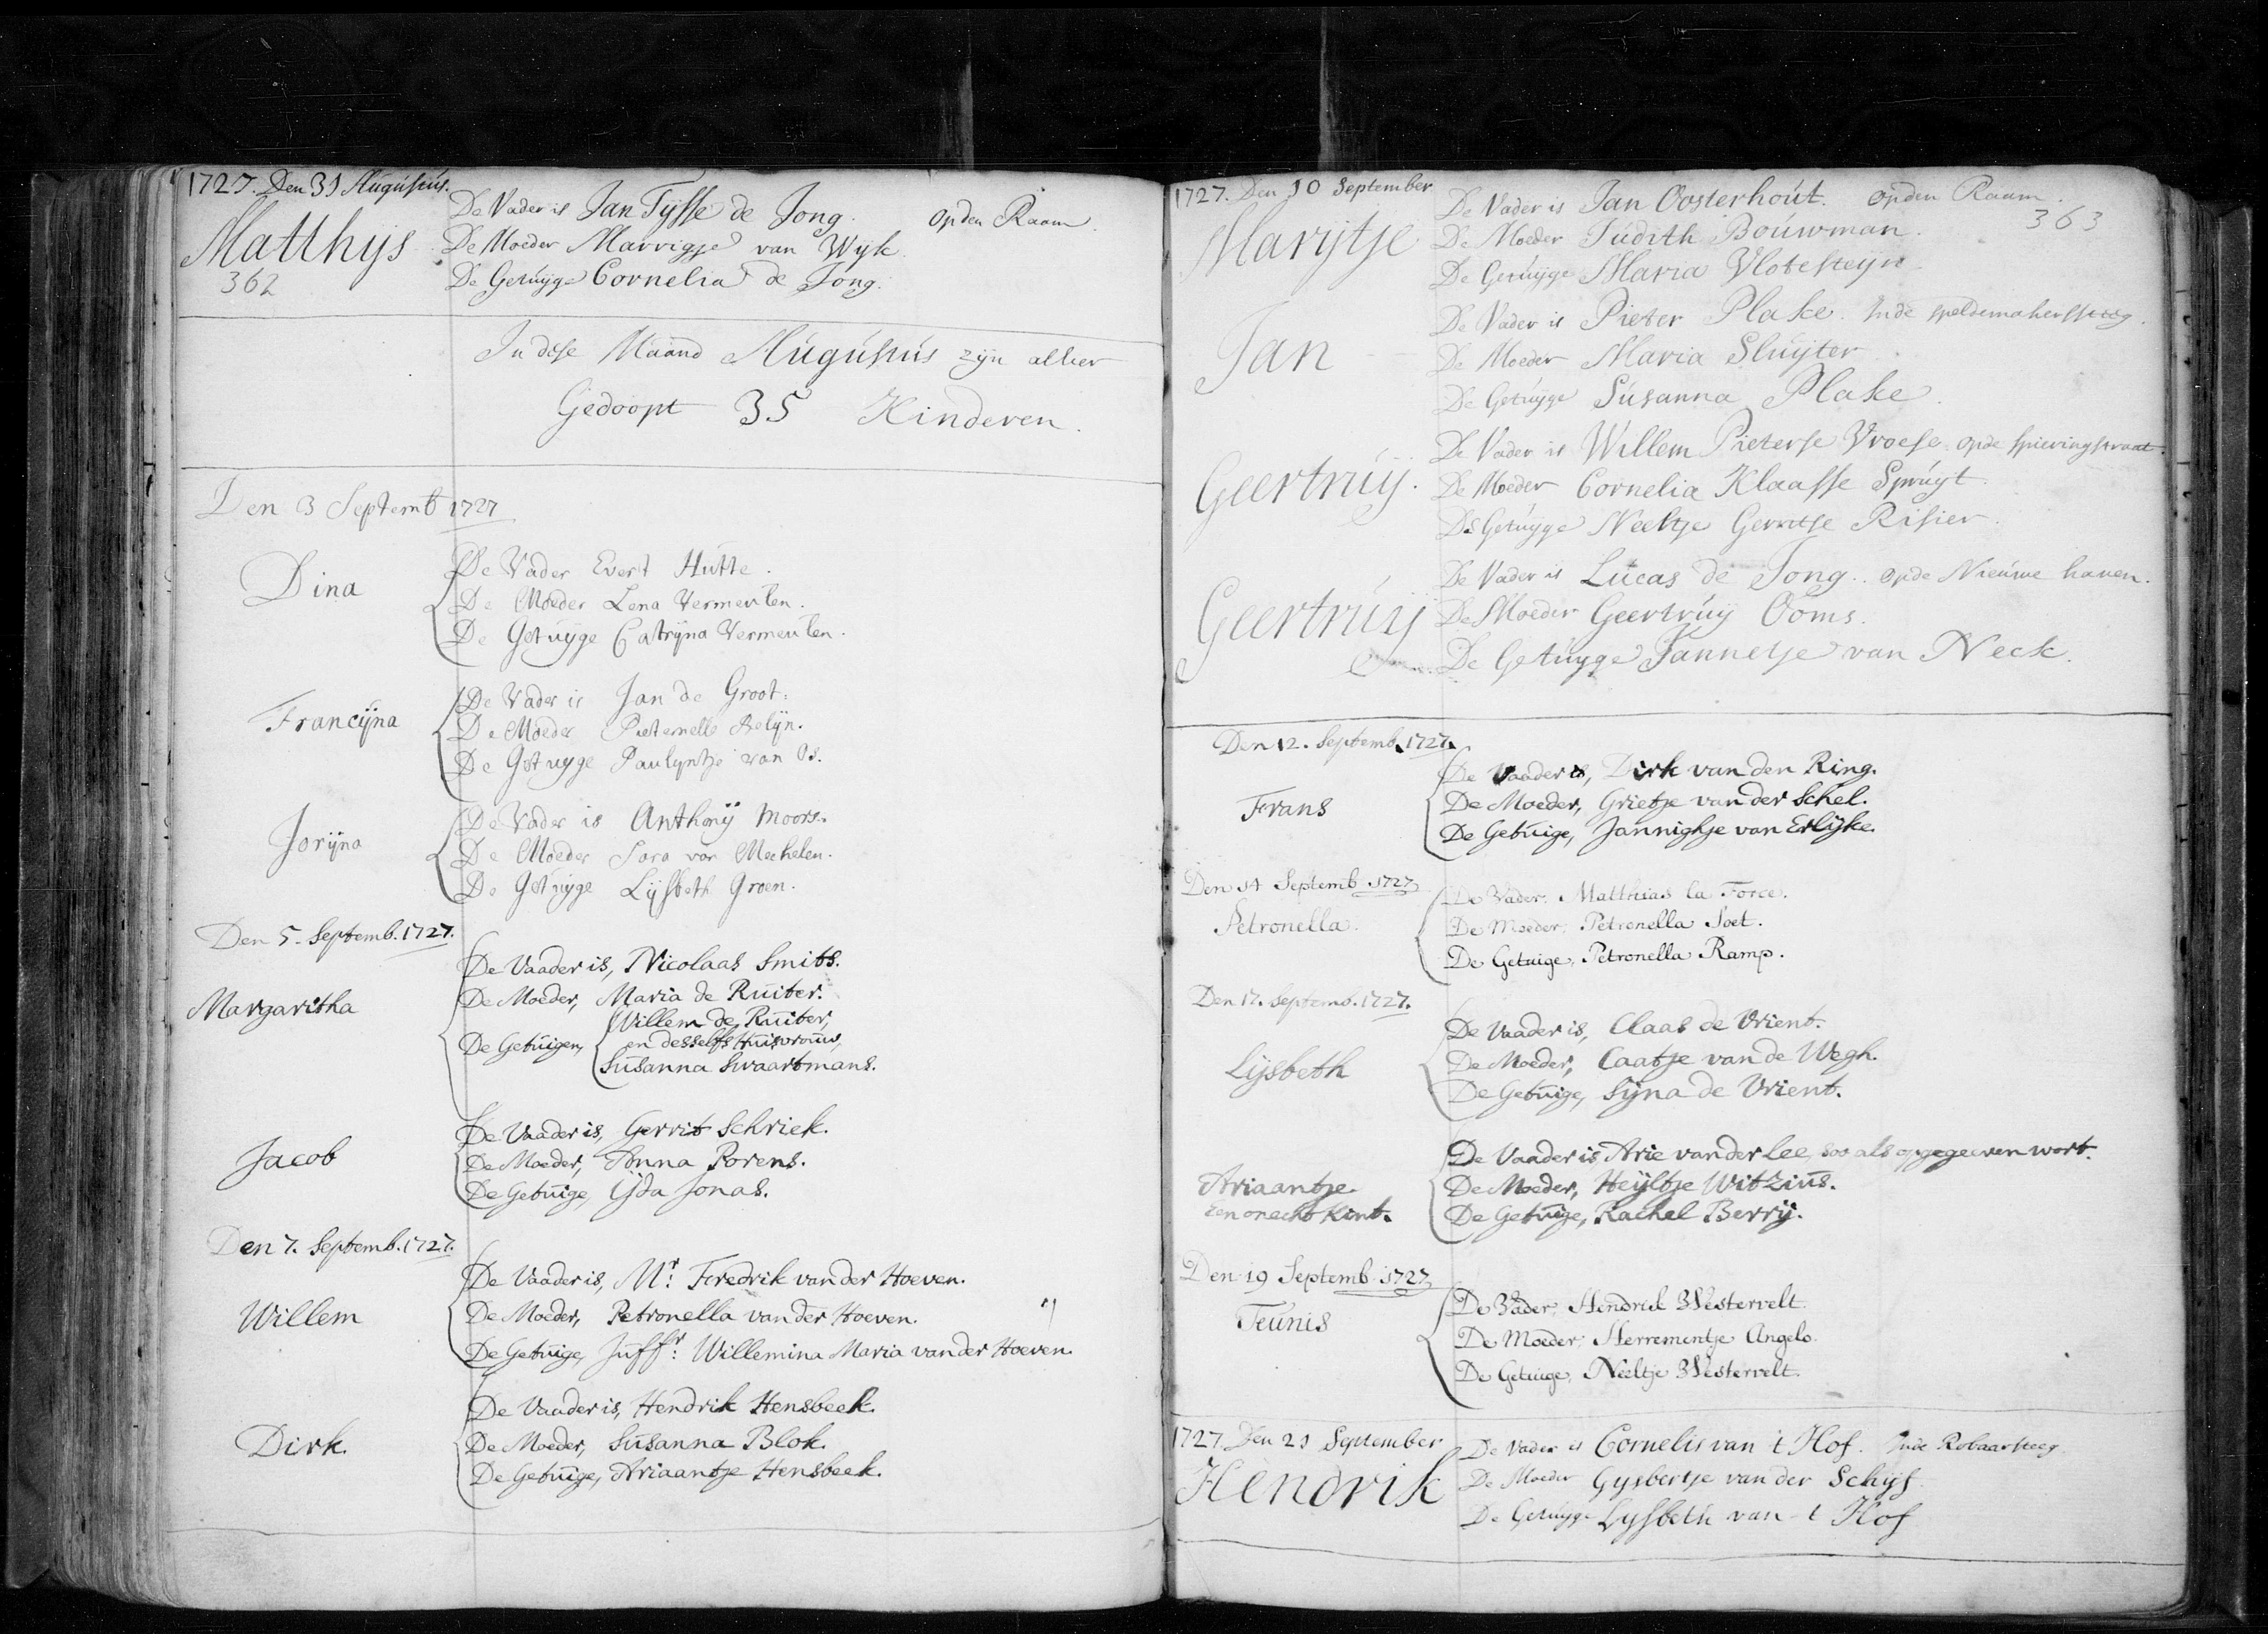 1727. Den 31 Augustus.
Matthijs
362
De Vader is Jan Tysse de Jong. op den Raam.
De Moeder Marrigje van Wyk
De Getuyge Cornelia de Jong.
In dese Maand Augustus zyn alhier
Gedoopt 35 Kinderen.
Den 3 Septemb 1727
Dina
De Vader Evert Hutte.
De Moeder Lena Vermeulen.
De Getuyge Catryna Vermeulen.
Francijna
De Vader is Jan de Groot.
De Moeder Pieternelle
De Getuyge Paulyntje van Os.
Jorijna
De Vader is Anthony Moors.
De Moeder Sara van Mechelen.
De Getuyge Lysbeth Groen.
Den 5. Septemb. 1727.
Margaritha
De Vaader is, Nicolaas Smits.
De Moeder, Maria de Ruiter.
De Getuigen, Willem de Ruiter,
en desselfs Huisvrouw,
Susanna Swaartmans.
Jacob
De Vaader is, Gerrit Schriek.
De Moeder, Anna Porens.
De Getuige, Yda Jonas.
Den 7. Septemb. 1727.
Willem
De Vaader is, Mr. Fredrik van der Hoeven.
De Moeder, Petronella van der Hoeven.
De Getuige, Juffr. Willemina Maria van der Hoeven.
Dirk
De Vaader is, Hendrik Hensbeek.
De Moeder, Susanna Blok.
De Getuige, Ariaantje Hensbeek.
1727. Den 10 September
363
Marijtje
De Vader is Jan Oosterhout. op den Raam.
De Moeder Judith Bouwman.
De Getuyge Maria Vlotesteyn
Jan
De Vader is Pieter Plake. In de speldemakerssteeg.
De Moeder Maria Sluyter.
De Getuyge Susanna Plake.
Geertruij.
De Vader is Willem Pieterse Vroese. op de spieringstraat.
De Moeder Cornelia Klaasse Spruyt.
De Getuyge Neeltje Gerritse Risier.
Geertruij
De Vader is Lucas de Jong. op de Nieuwe haven.
De Moeder Geertruy Ooms.
De Getuyge Jannetje van Neck.
Den 12. Septemb. 1727.
Frans
De Vaader is, Dirk van den Ring.
De Moeder, Grietje van der Schel.
De Getuige, Jannighje van Erlijke.
Den 14 Septemb 1727
Petronella
De Vader, Matthias la Force.
De Moeder, Petronella Soet.
De Getuige, Petronella Ramp.
Den 17. Septemb. 1727.
Lijsbeth
De Vaader is, Claas de Vrient.
De Moeder, Caatje van de Wegh.
De Getuige, Sijna de Vrient.
Ariaantje
Een onecht Kint.
De Vaader is Arie van der Lee, soo als opgegeeven wort.
De Moeder, Heijltje Witzius.
De Getuige, Rachel Berrij.
Den 19 Septemb 1727
Teunis
De Vader, Hendrik Westervelt.
De Moeder, Herrementje Angelo.
De Getuige, Neeltje Westervelt.
1727. Den 21 September
Hendrik
De Vader is Cornelis van 't Hof. In de Robaarsteeg
De Moeder Gysbertje van der Schijf
De Getuyge Lysbeth van 't Hof